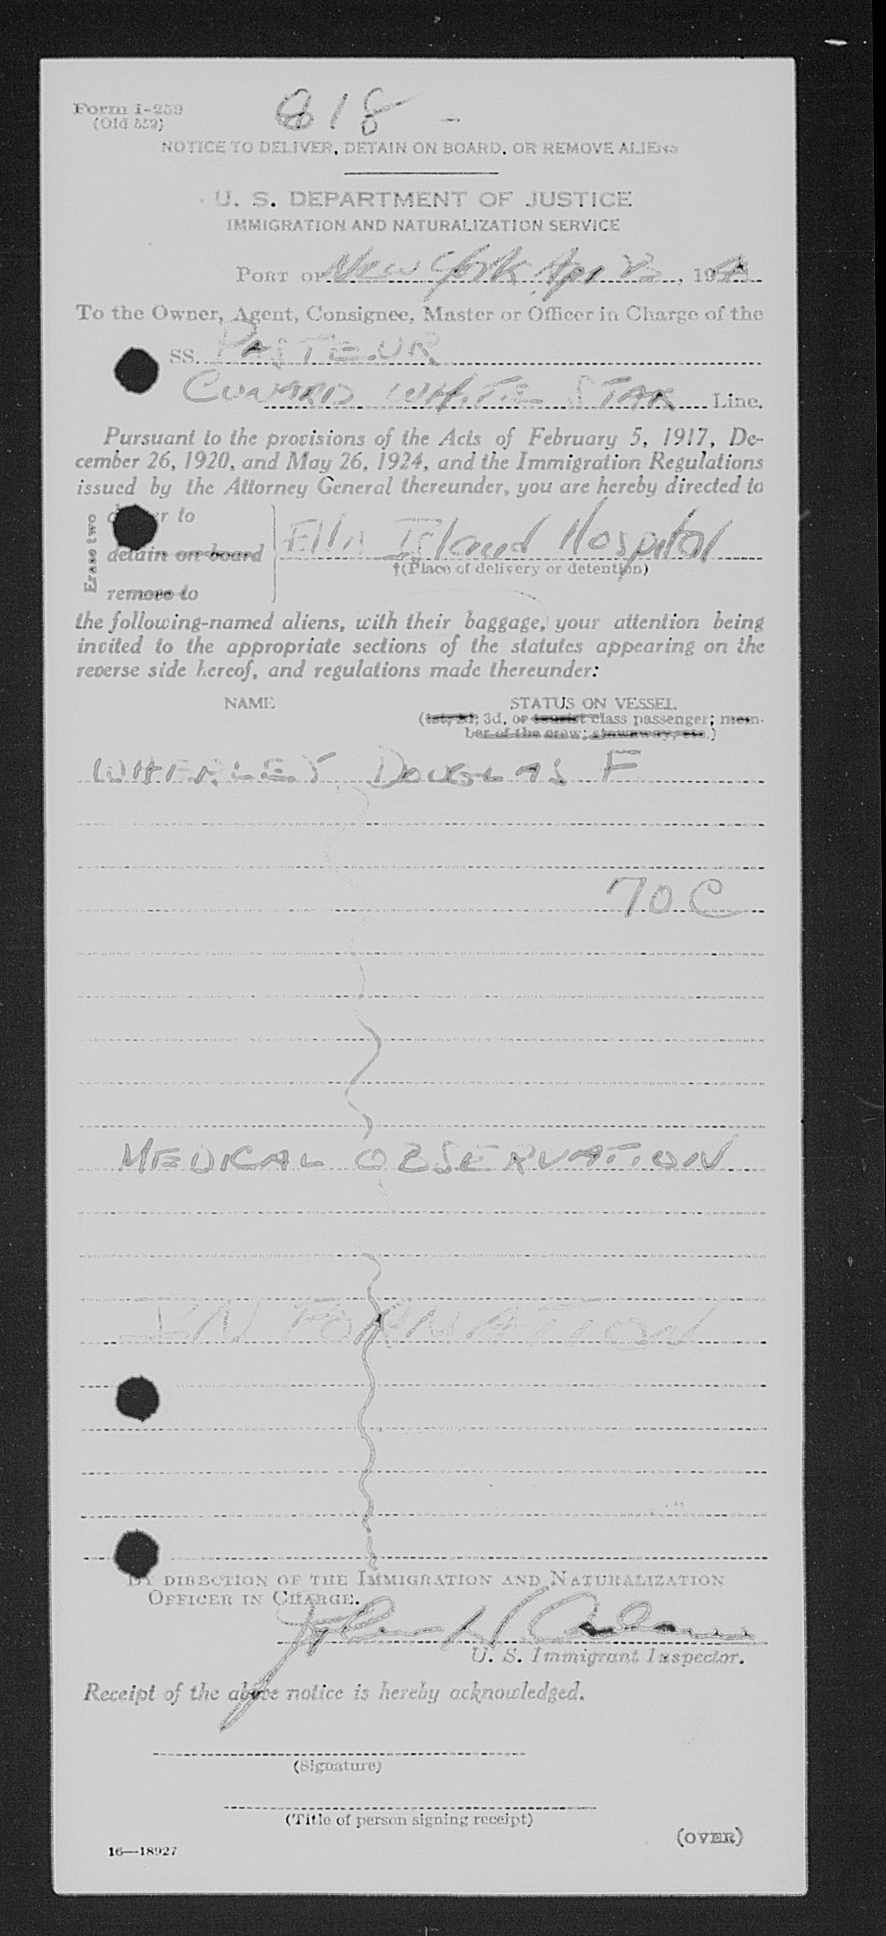 Form I-259
(Old 559)
818 -
NOTICE TO DELIVER, DETAIN ON BOARD, OR REMOVE ALIENS
U. S. DEPARTMENT OF JUSTICE
IMMIGRATION AND NATURALIZATION SERVICE
PORT OF New York Apr , 194
To the Owner, Agent, Consignee, Master or Officer in Charge of the
SS. PASTEUR
CUNARD WHITE STAR Line.
Pursuant to the provisions of the Acts of February 5, 1917, De-
cember 26, 1920, and May 26, 1924, and the Immigration Regulations
issued by the Attorney General thereunder, you are hereby directed to
Erase two
deliver to
detain on board
remove to
Ellis Island Hospital
†(Place of delivery or detention)
the following-named aliens, with their baggage, your attention being
invited to the appropriate sections of the statutes appearing on the
reverse side hereof, and regulations made thereunder:
NAME STATUS ON VESSEL
(1st, 2d, 3d, or tourist class passenger; mem-
ber of the crew; stowaway, etc.)
DOUGLAS F
70 C
MEDICAL OBSERVATION
INFORMATION
BY DIRECTION OF THE IMMIGRATION AND NATURALIZATION
OFFICER IN CHARGE.
U. S. Immigrant Inspector.
Receipt of the above notice is hereby acknowledged.
(Signature)
(Title of person signing receipt)
(OVER)
16—18927